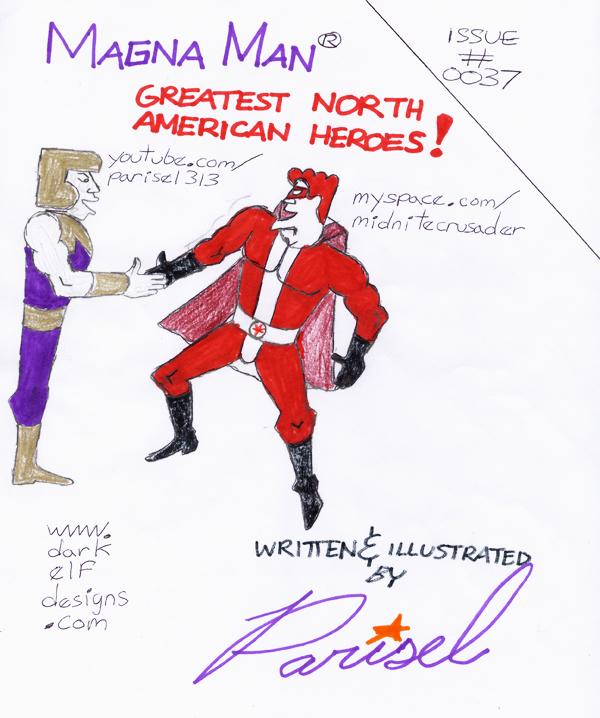 MAGNA MAN®
ISSUE
#
0037
GREATEST NORTH
AMERICAN HEROES!
youtube.com/
parisel313
myspace.com/
midnitecrusader
www.
dark
elf
designs
.com
WRITTEN & ILLUSTRATED
BY
Parisel